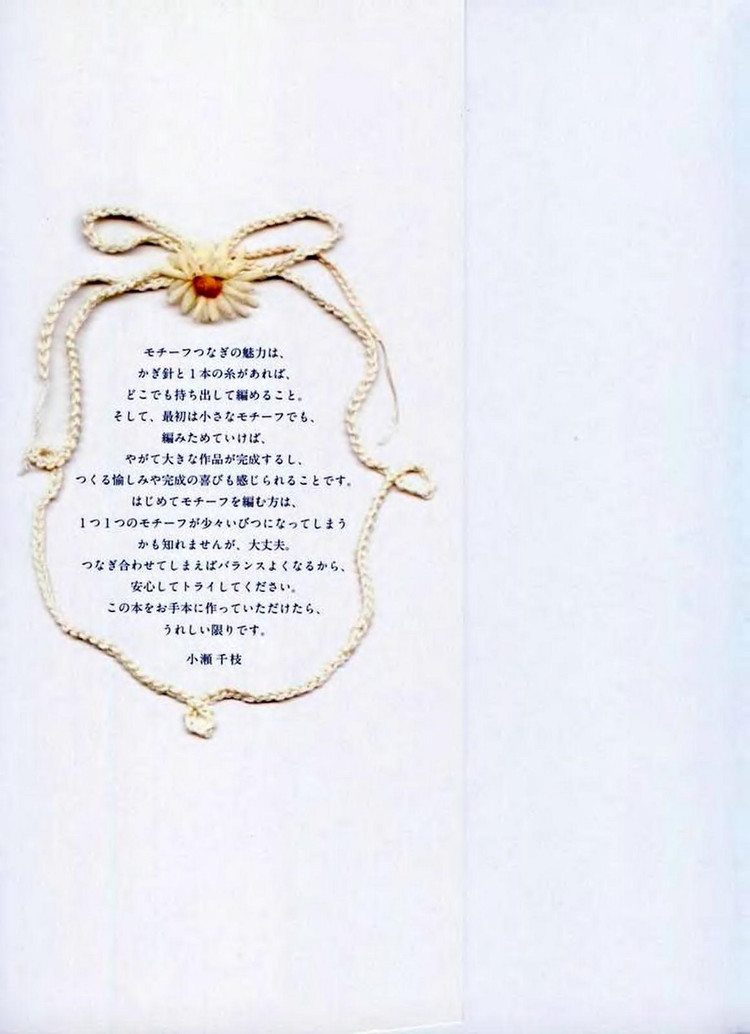 モチーフつなぎの魅力は、
かぎ針と１本の糸があれば、
どこでも持ち出して編めること。
そして、最初は小さなモチーフでも、
編みためていけば、
やがて大きな作品が完成するし、
つくる愉しみや完成の喜びも感じられることです。
はじめてモチーフを編む方は、
１つ１つのモチーフが少々いびつになってしまう
かも知れませんが、大丈夫。
つなぎ合わせてしまえばバランスよくなるから、
安心してトライしてください。
この本をお手本に作っていただけたら、
うれしい限りです。
小瀬 千枝